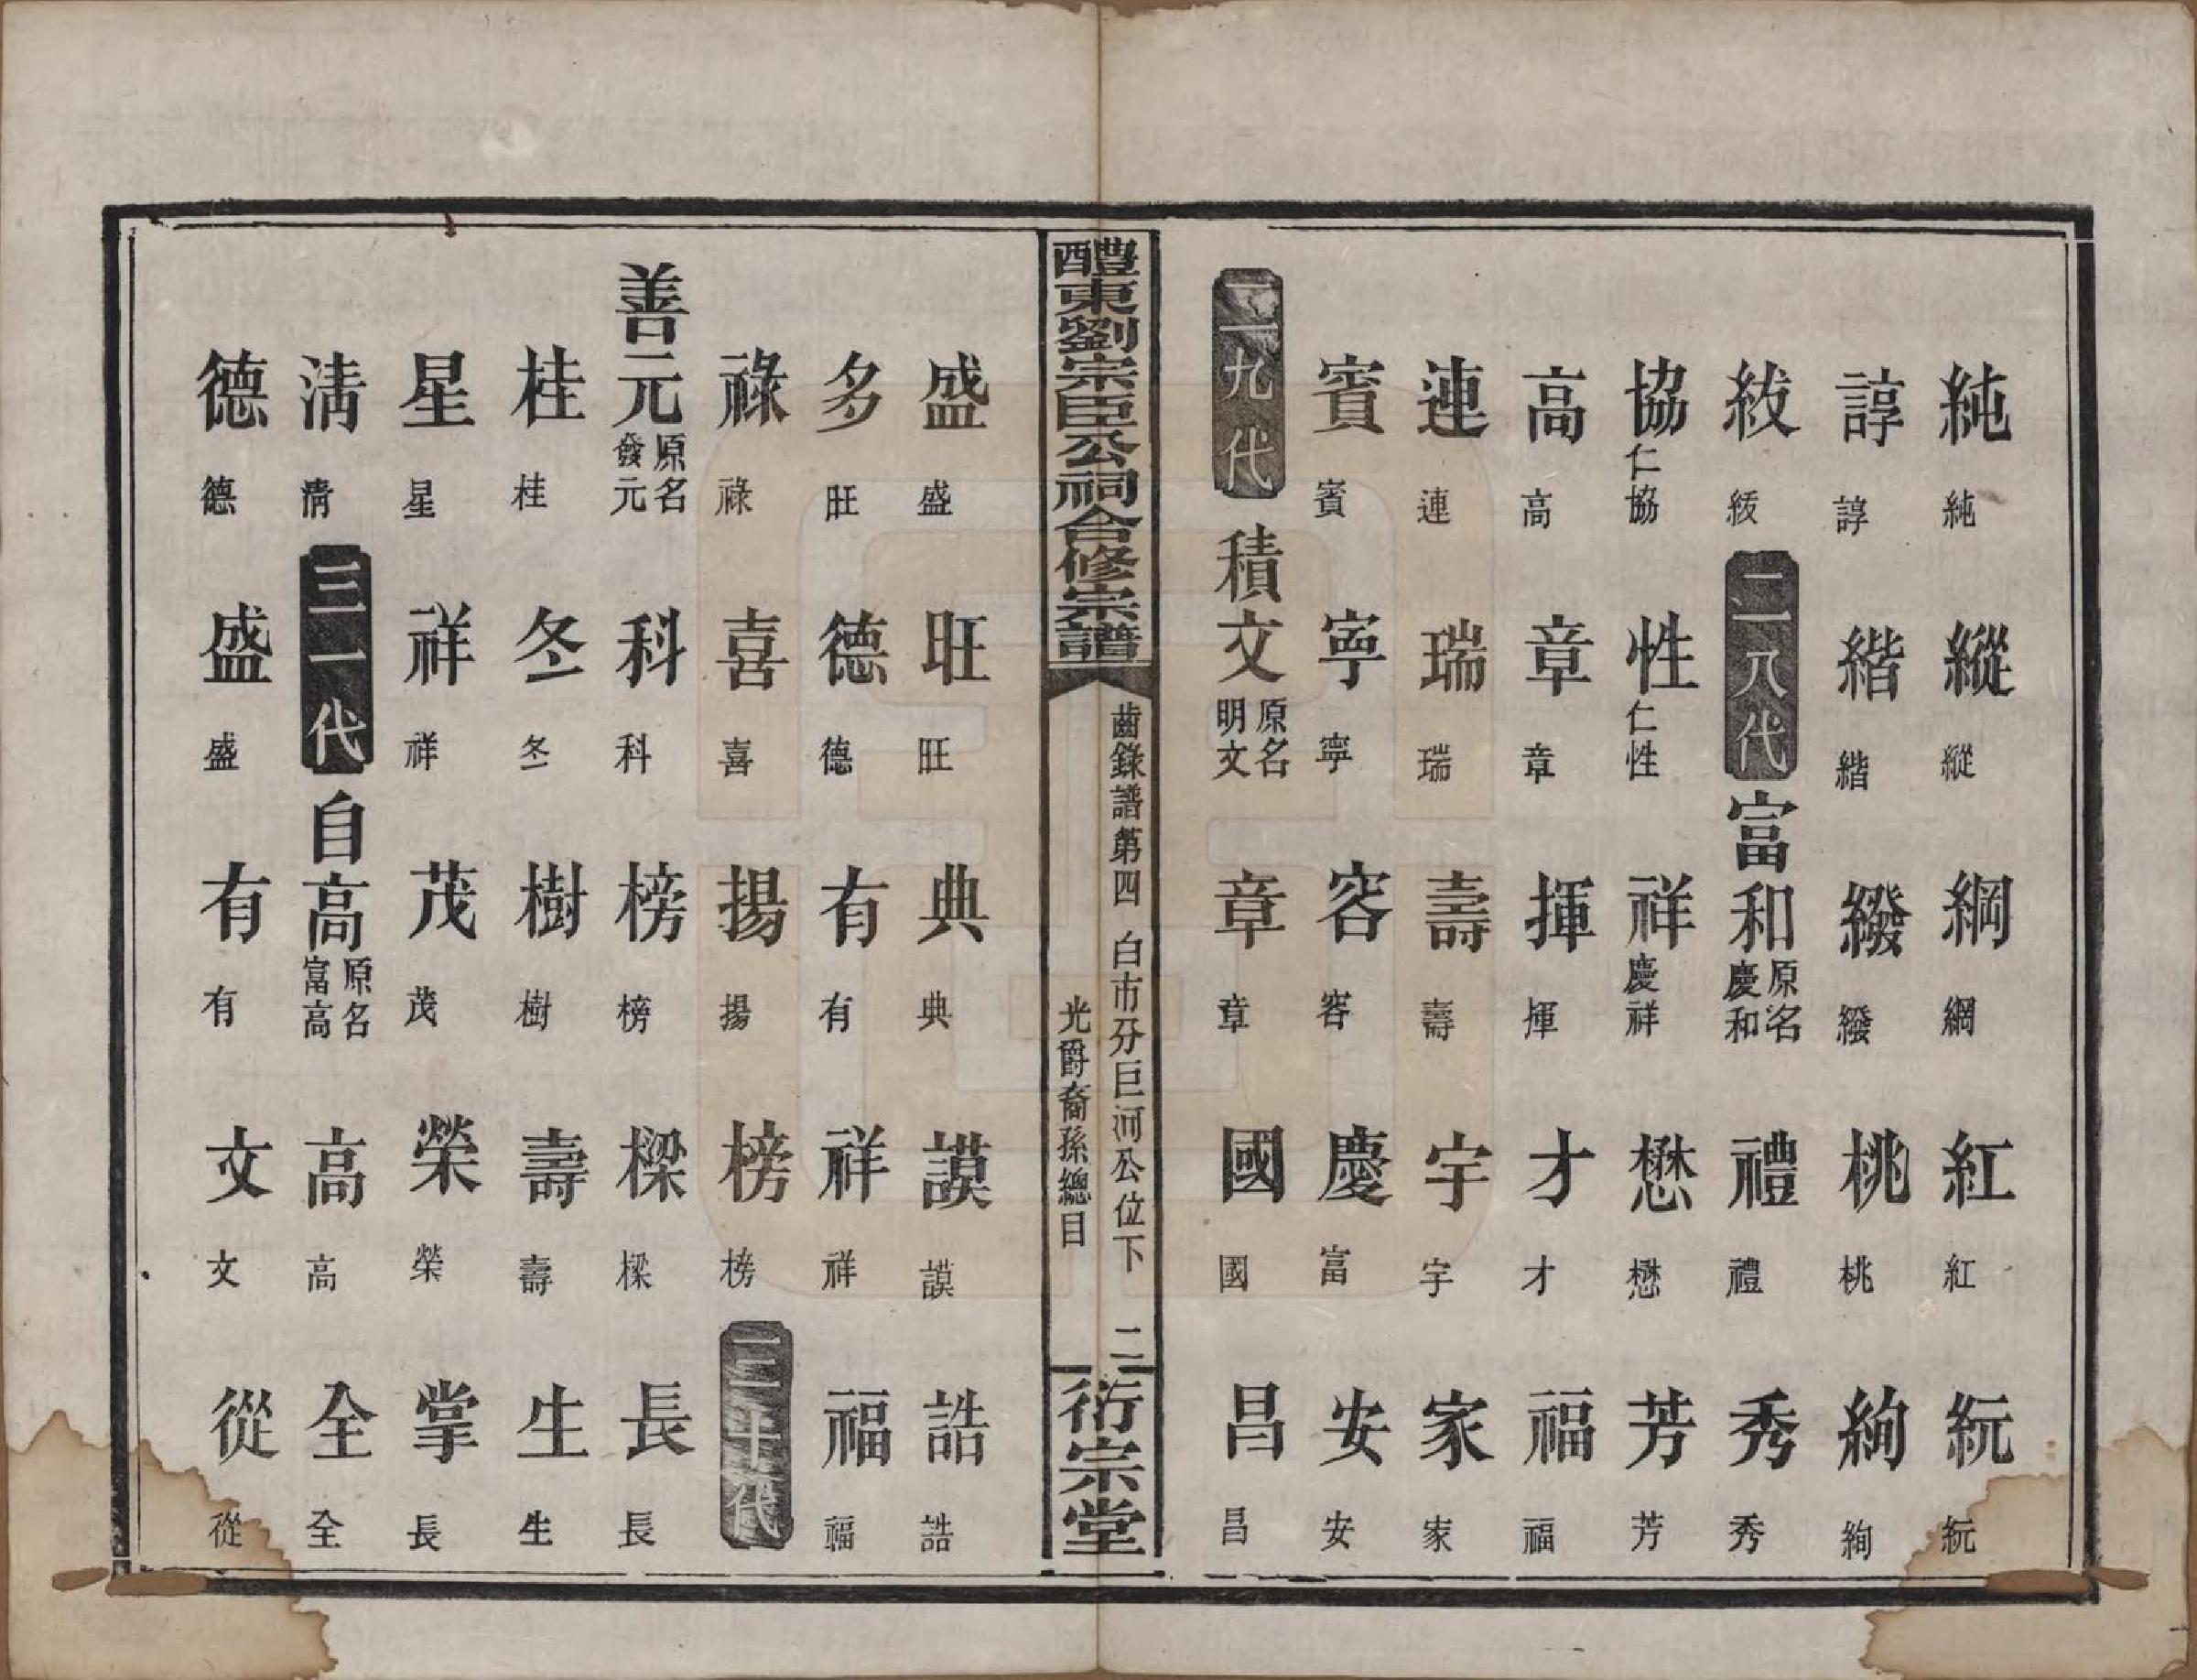 純 純 縱 縱 綱 綱 紅 紅 紜 紜
諄 諄 緒 緒 綴 綴 桃 桃 絢 絢
紱 紱 二八代 富和 原名慶和 禮 禮 秀 秀
協 仁協 性 仁性 祥 慶祥 懋 懋 芳 芳
高 高 章 章 揮 揮 才 才 福 福
連 連 瑞 瑞 壽 壽 宇 宇 家 家
賓 賓 寧 寧 容 容 慶 富 安 安
二九代 積文 原名明文 章 章 國 國 昌 昌
醴東劉宗臣公祠合修宗譜
齒錄譜第四 白市分巨河公位下 二
光爵裔孫總目
衍宗堂
盛 盛 旺 旺 典 典 謨 謨 誥 誥
多 旺 德 德 有 有 祥 祥 福 福
祿 祿 喜 喜 揚 揚 榜 榜 三十代
善元 原名發元 科 科 榜 榜 樑 樑 長 長
桂 桂 冬 冬 樹 樹 壽 壽 生 生
星 星 祥 祥 茂 茂 榮 榮 掌 長
清 清 三一代 自高 原名富高 高 高 全 全
德 德 盛 盛 有 有 文 文 從 從